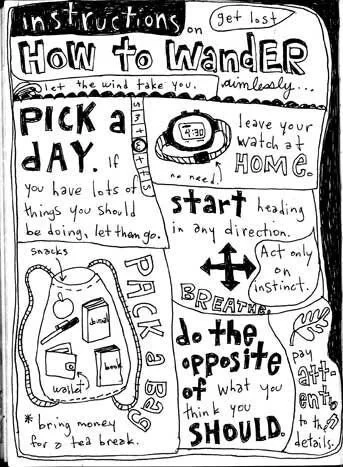 instructions on
get lost
How to WANDER
let the wind take you.
aimlessly...
PICK a
dAY. If
you have lots of
things you should
be doing, let them go.
S M T W T F S
4:30
no need.
leave your
watch at
HOME.
start heading
in any direction.
Act only
on
instinct.
BREATHE.
snacks
journal
book
wallet
PACK a BAG
* bring money
for a tea break.
do the
opposite
of what you
think you
SHOULD.
pay
att-
ent.
to the
details.